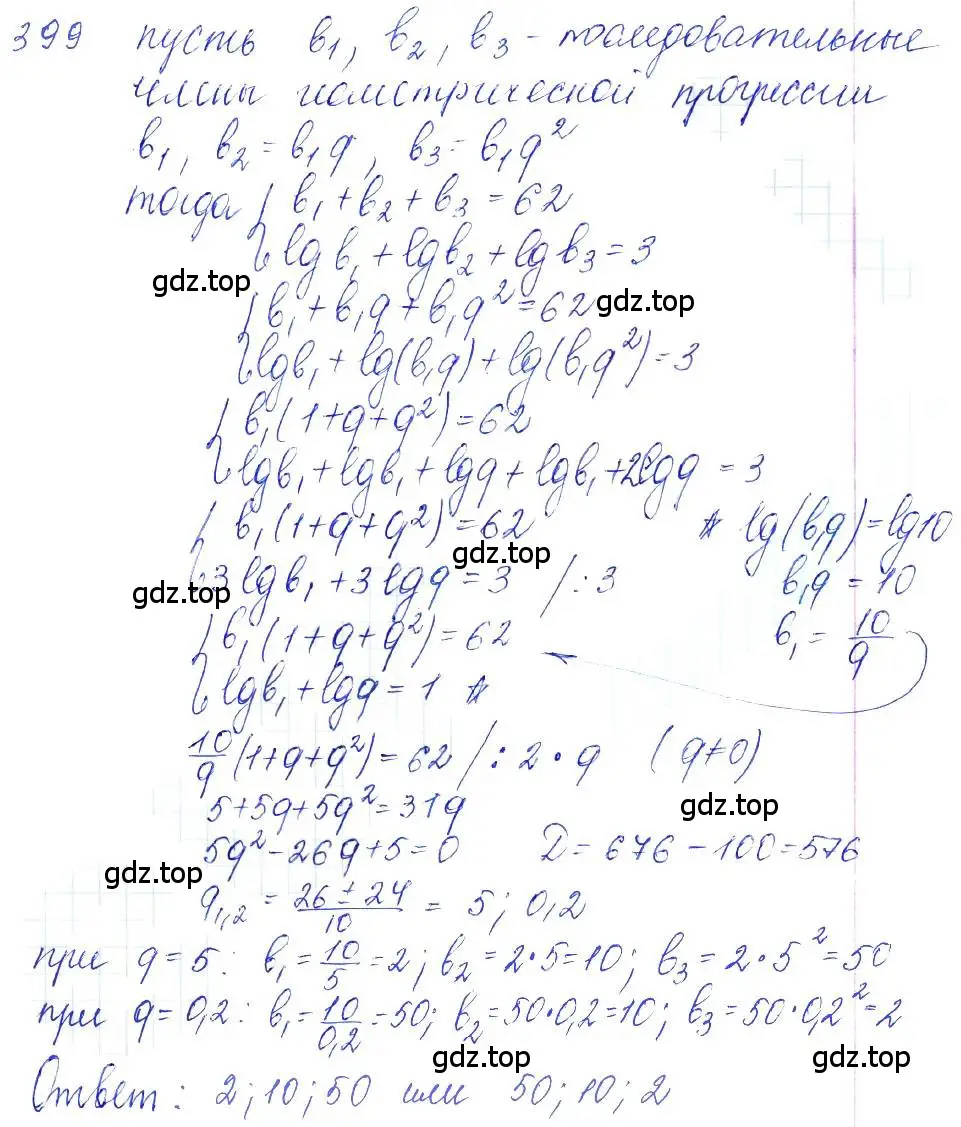 399 пусть b₁, b₂, b₃ - последовательные
члены геометрической прогрессии
b₁, b₂ = b₁q, b₃ = b₁q²
тогда { b₁ + b₂ + b₃ = 62
{ lg b₁ + lg b₂ + lg b₃ = 3
gdz.top
{ b₁ + b₁q + b₁q² = 62 gdz.top
{ lg b₁ + lg(b₁q) + lg(b₁q²) = 3
{ b₁(1+q+q²) = 62
{ lg b₁ + lg b₁ + lg q + lg b₁ + 2lg q = 3
{ b₁(1+q+q²) = 62 * lg(b₁q) = lg10
gdz.top
{ 3 lg b₁ + 3 lg q = 3 /:3 b₁q = 10
gdz.top
{ b₁(1+q+q²) = 62 b₁ = 10/q
{ lg b₁ + lg q = 1 *
10/q (1+q+q²) = 62 /:2·q (q≠0)
5+5q+5q² = 31q gdz.top
5q² - 26q + 5 = 0 D = 676 - 100 = 576
gdz.top
q₁,₂ = (26 ± 24)/10 = 5; 0,2
при q = 5: b₁ = 10/5 = 2; b₂ = 2·5 = 10; b₃ = 2·5² = 50
gdz.top
при q = 0,2: b₁ = 10/0,2 = 50; b₂ = 50·0,2 = 10; b₃ = 50·0,2² = 2
gdz.top gdz.top
Ответ: 2; 10; 50 или 50; 10; 2